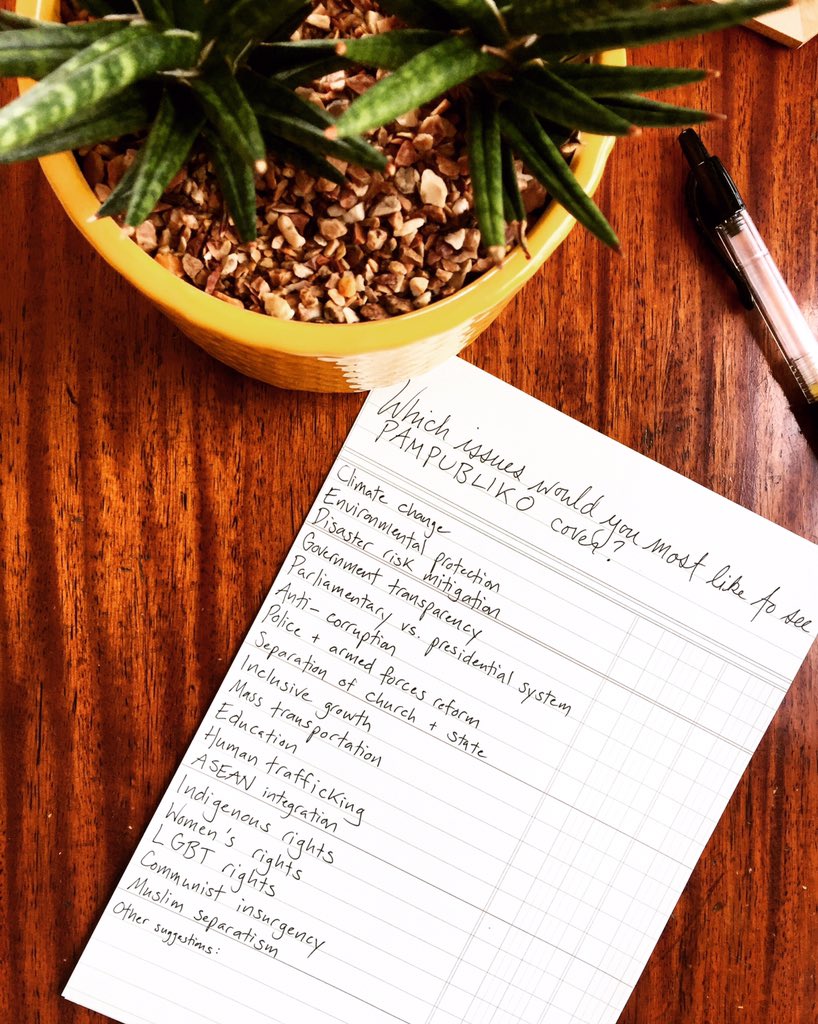 Which issues would you most like to see
PAMPUBLIKO cover?
Climate change
Environmental protection
Disaster risk mitigation
Government transparency
Parliamentary vs. presidential system
Anti-corruption
Police + armed forces reform
Separation of church + state
Inclusive growth
Mass transportation
Education
Human trafficking
ASEAN integration
Indigenous rights
Women's rights
LGBT rights
Communist insurgency
Muslim separatism
Other suggestions: